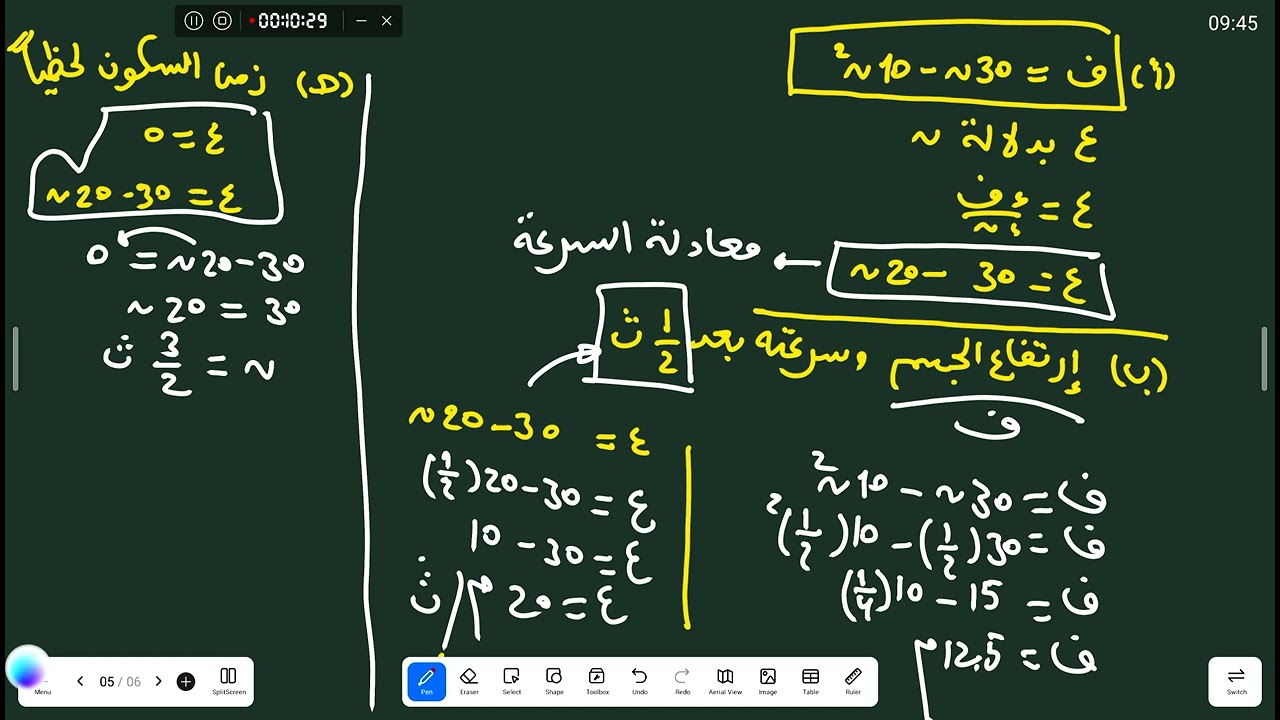 00:10:29
09:45
(أ) ف = 30ن - 10ن²
ع بدلالة ن
ع = ءف/ءن
ع = 30 - 20ن ← معادلة السرعة
(ب) إرتفاع الجسم وسرعته بعد 1/2 ث
ف
ف = 30ن - 10ن²
ف = 30(1/2) - 10(1/2)²
ف = 15 - 10(1/4)
ف = 12.5 م
ع = 30 - 20ن
ع = 30 - 20(1/2)
ع = 30 - 10
ع = 20 م/ث
(د) زمن السكون لحظيا
ع = 0
ع = 30 - 20ن
30 - 20ن = 0
30 = 20ن
ن = 3/2 ث
Menu
05 / 06
SplitScreen
Pen Eraser Select Shape Toolbox Undo Redo Aerial View Image Table Ruler
Switch